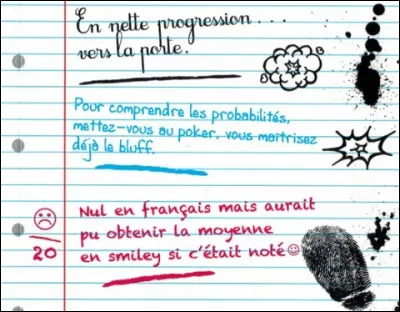 En nette progression...
vers la porte.
Pour comprendre les probabilités,
mettez-vous au poker. vous maîtrisez
déjà le bluff.
Nul en français mais aurait
pu obtenir la moyenne
20
en smiley si c'était noté